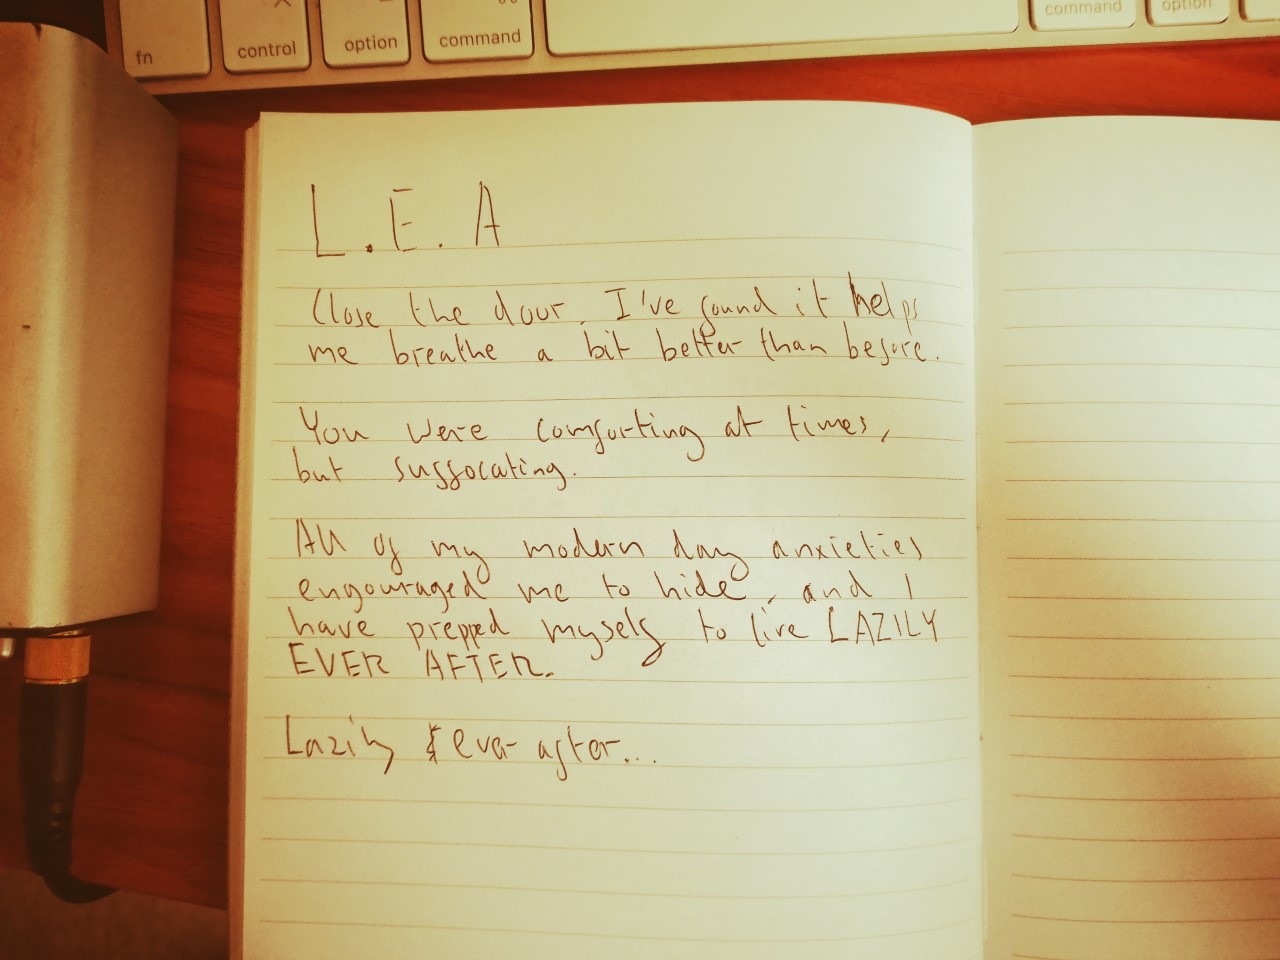 fn control option command command option
L.E.A
Close the door. I've found it helps
me breathe a bit better than before.
You were comforting at times,
but suffocating.
All of my modern day anxieties
engouraged me to hide, and I
have prepped myself to live LAZILY
EVER AFTER.
Lazily & ever after...